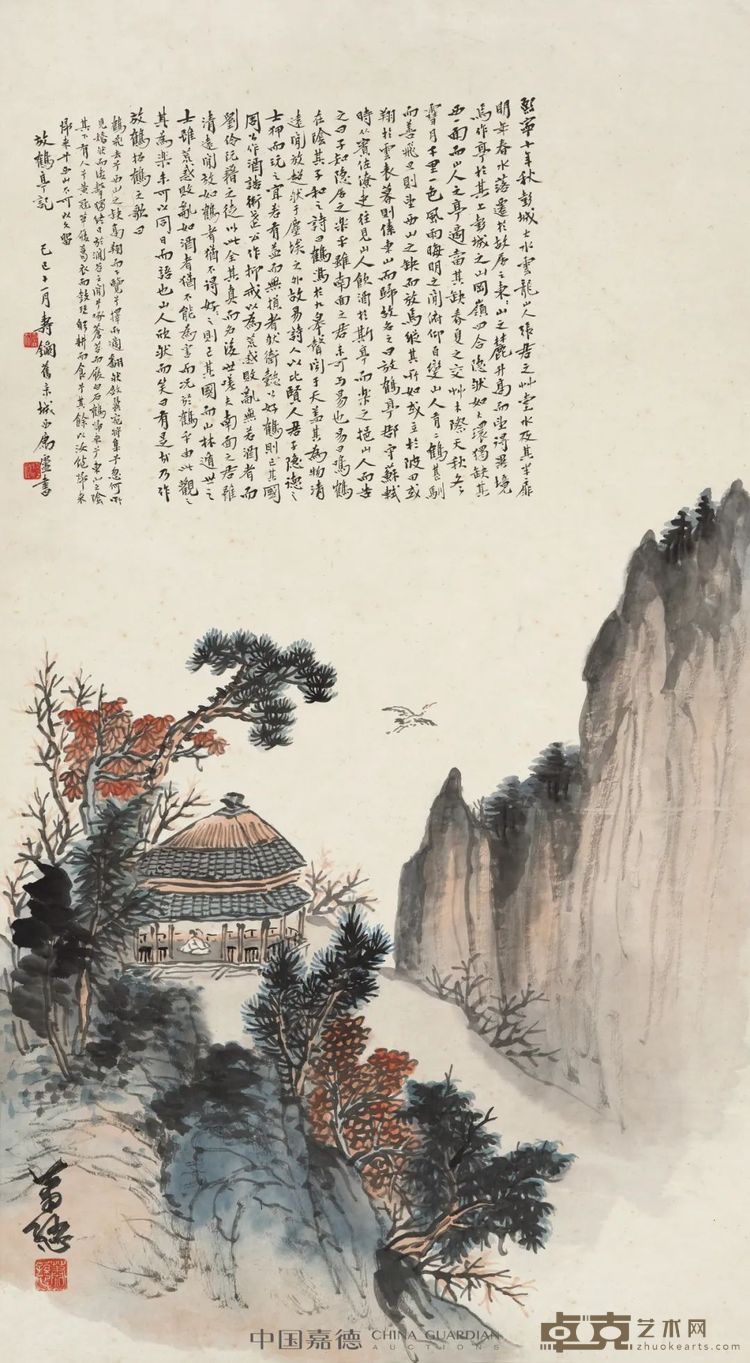 熙寧十年秋彭城大水雲龍山人張君之艸堂水及其半扉
明年春水落遷於故居之東東山之麓升高而望得異境
焉作亭於其上彭城之山岡嶺四合隱然如大環獨缺其
西一面而山人之亭適當其缺春夏之交艸木際天秋冬
雪月千里一色風雨晦明之間俯仰百變山人有二鶴甚馴
而善飛旦則望西山之缺而放焉縱其所如或立於陂田或
翔於雲表暮則傃東山而歸故名之曰放鶴亭郡守蘇軾
時從賓佐僚吏往見山人飲酒於斯亭而樂之挹山人而告
之曰子知隱居之樂乎雖南面之君未可與易也易曰鳴鶴
在陰其子和之詩曰鶴鳴於九皋聲聞于天蓋其為物清
遠閒放超然于塵埃之外故易詩人以比賢人君子隱德之
士狎而玩之宜若有益而無損者然衛懿公好鶴則亡其國
周公作酒誥衛武公作抑戒以為荒惑敗亂無若酒者而
劉伶阮籍之徒以此全其真而名後世嗟夫南面之君雖
清遠閒放如鶴者猶不得好好之則亡其國而山林遁世之
士雖荒惑敗亂如酒者猶不能為害而況於鶴乎由此觀之
其為樂未可以同日而語也山人欣然而笑曰有是哉乃作
放鶴招鶴之歌曰
鶴飛去兮西山之缺高翔而下覽兮擇所適翻然斂翼宛將集兮忽何所
見矯然而復擊獨終日於澗谷之間兮啄蒼苔而履白石鶴歸來兮東山之陰
其下有人兮黃冠草履葛衣而鼓琴躬耕而食兮其餘以汝飽歸來
歸來兮西山不可以久留
放鶴亭記 己巳十一月壽鑈舊京城西書
蕭愻
中国嘉德 CHINA GUARDIAN
AUCTIONS
卓克艺术网
zhuokearts.com